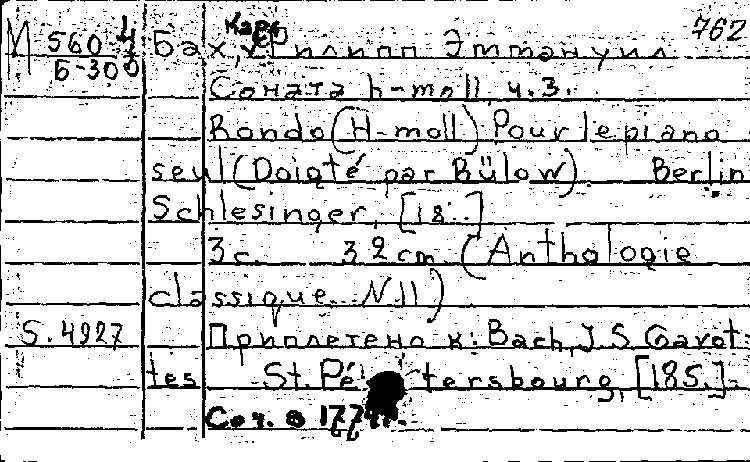 762
Карл
М 560 4/3 Бах, Филипп Эммануил
Б-300
Соната h-moll, ч.3.
Rondo (H-moll) Pour le piano
seul (Doigté par Bülow). Berlin
Schlesinger, [18..]
3 с. 32 cm (Anthologie
classique. N11)
S.4927 Приплетено к: Bach, J.S. Gavot-
tes St. Pé tersbourg, [185.]-
Соч. в 1774г.